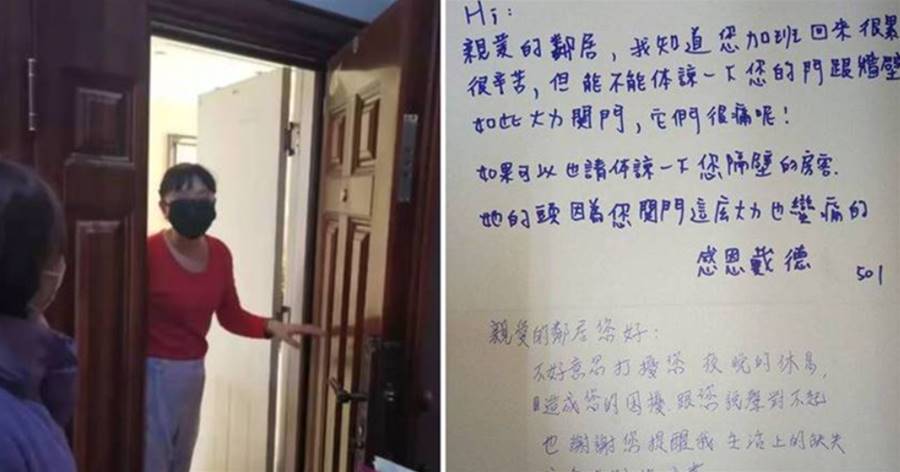 Hi:
親愛的鄰居,我知道您加班回來很累
很辛苦,但能不能体諒一下您的門跟牆壁
如此大力關門,它們很痛呢!
如果可以也請体諒一下您隔壁的房客.
她的頭因為您關門這麼大力也變痛的
感恩戴德
501
親愛的鄰居您好:
不好意思打擾您夜晚的休息,
造成您的困擾.跟您說聲對不起
也謝謝您提醒我生活上的缺失